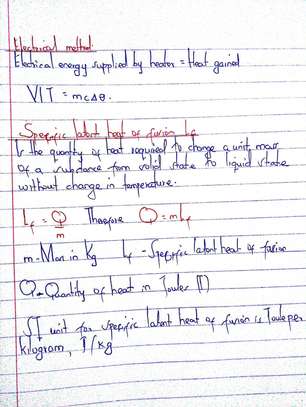 Electrical method.
Electrical energy supplied by heater = Heat gained
VIT = mcΔθ.
Specific latent heat of fusion Lf
Is the quantity of heat required to change a unit mass
of a substance from solid state to liquid state
without change in temperature.
Lf = Q/m Therefore Q = mLf
m - Mass in Kg Lf - Specific latent heat of fusion
Q - Quantity of heat in Joules (J)
SI unit for specific latent heat of fusion is Joule per
kilogram, J/kg